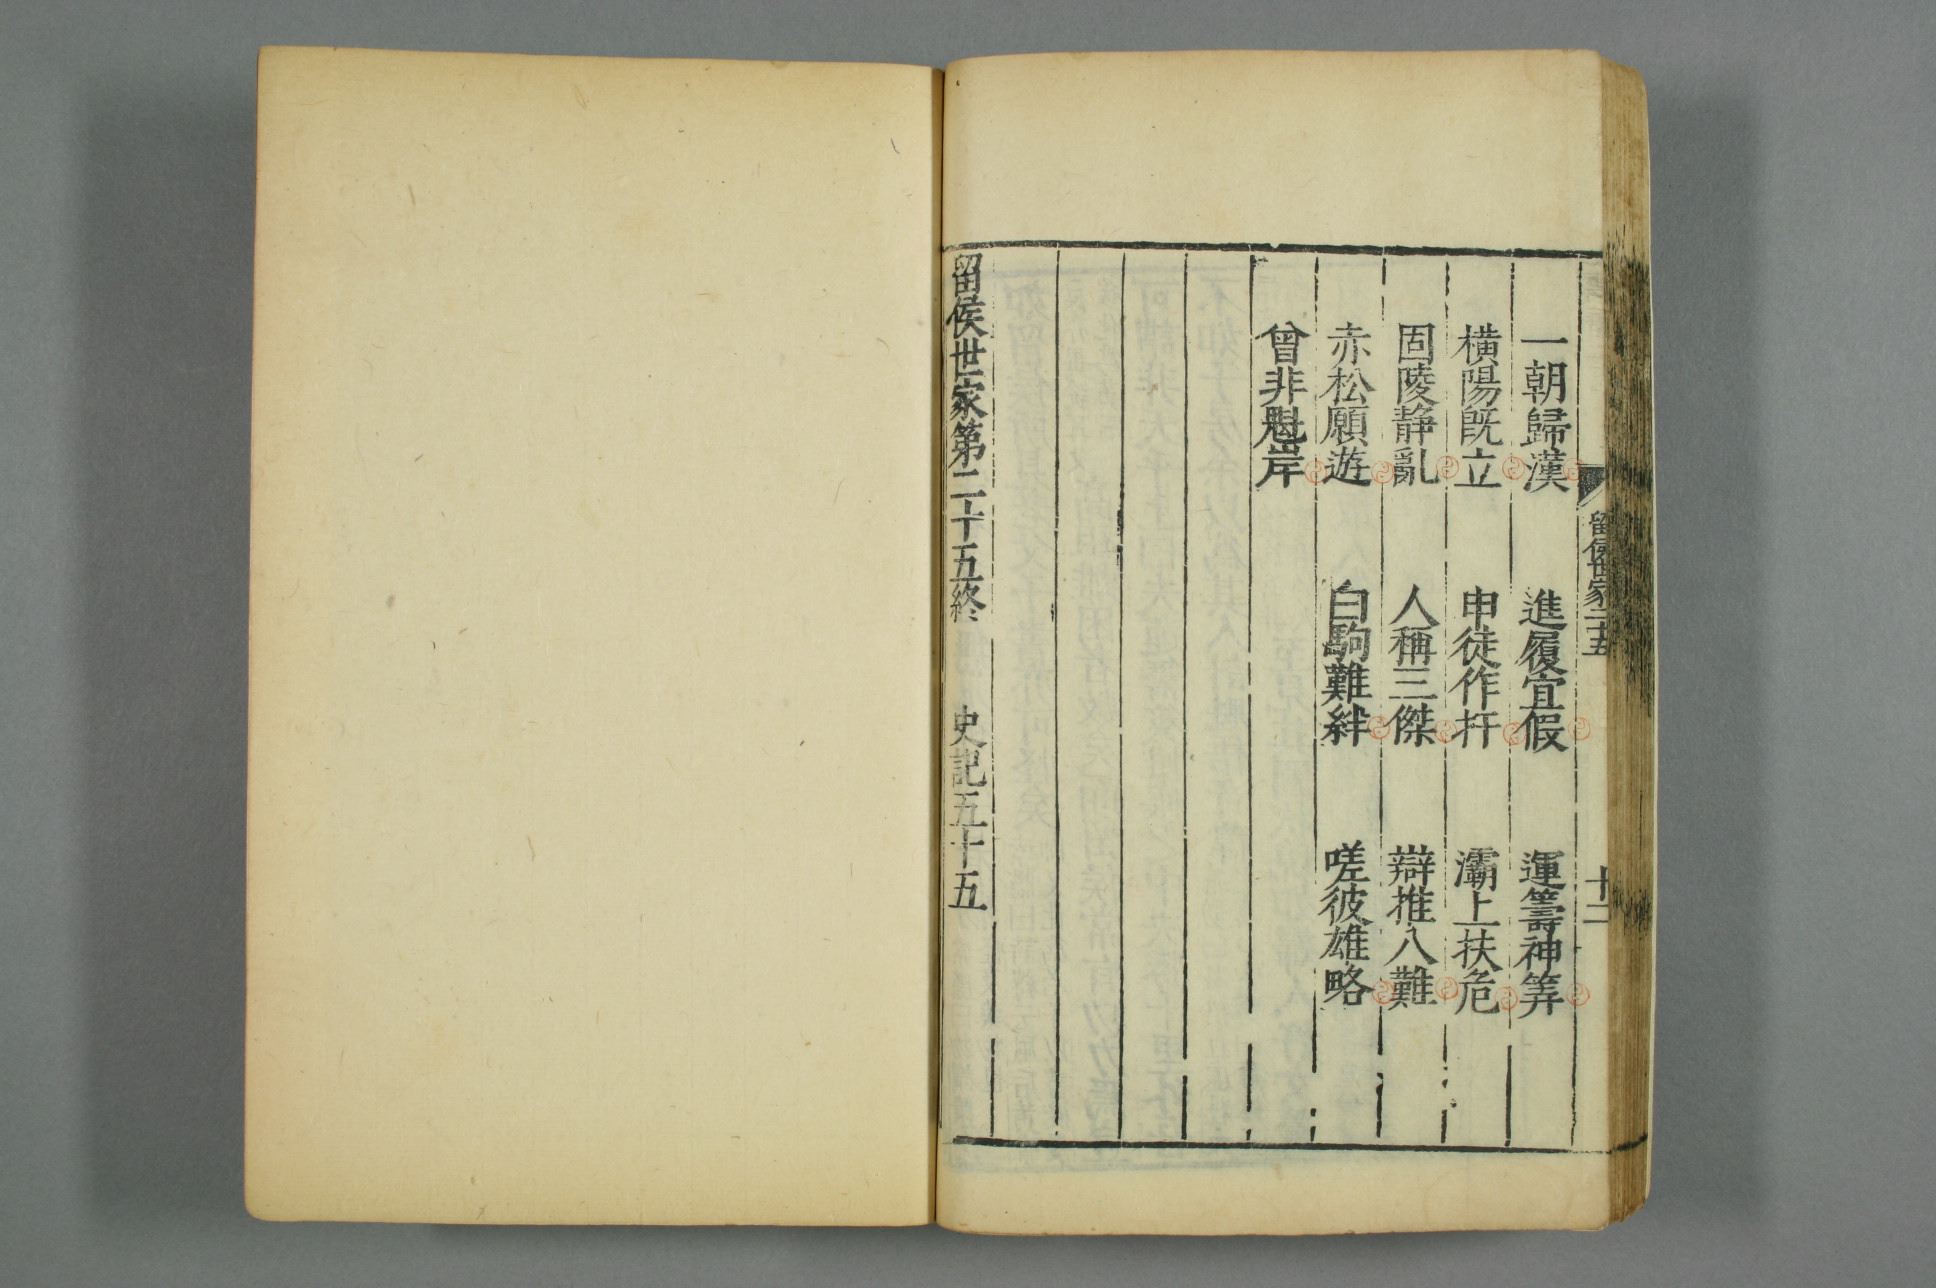 留侯世家二十五
十二
一朝歸漢　進履宜假　運籌神筭
橫陽旣立　申徒作扞　灞上扶危
固陵静亂　人稱三傑　辯推八難
赤松願遊　白駒難絆　嗟彼雄略
曾非魁岸
留侯世家第二十五終　史記五十五